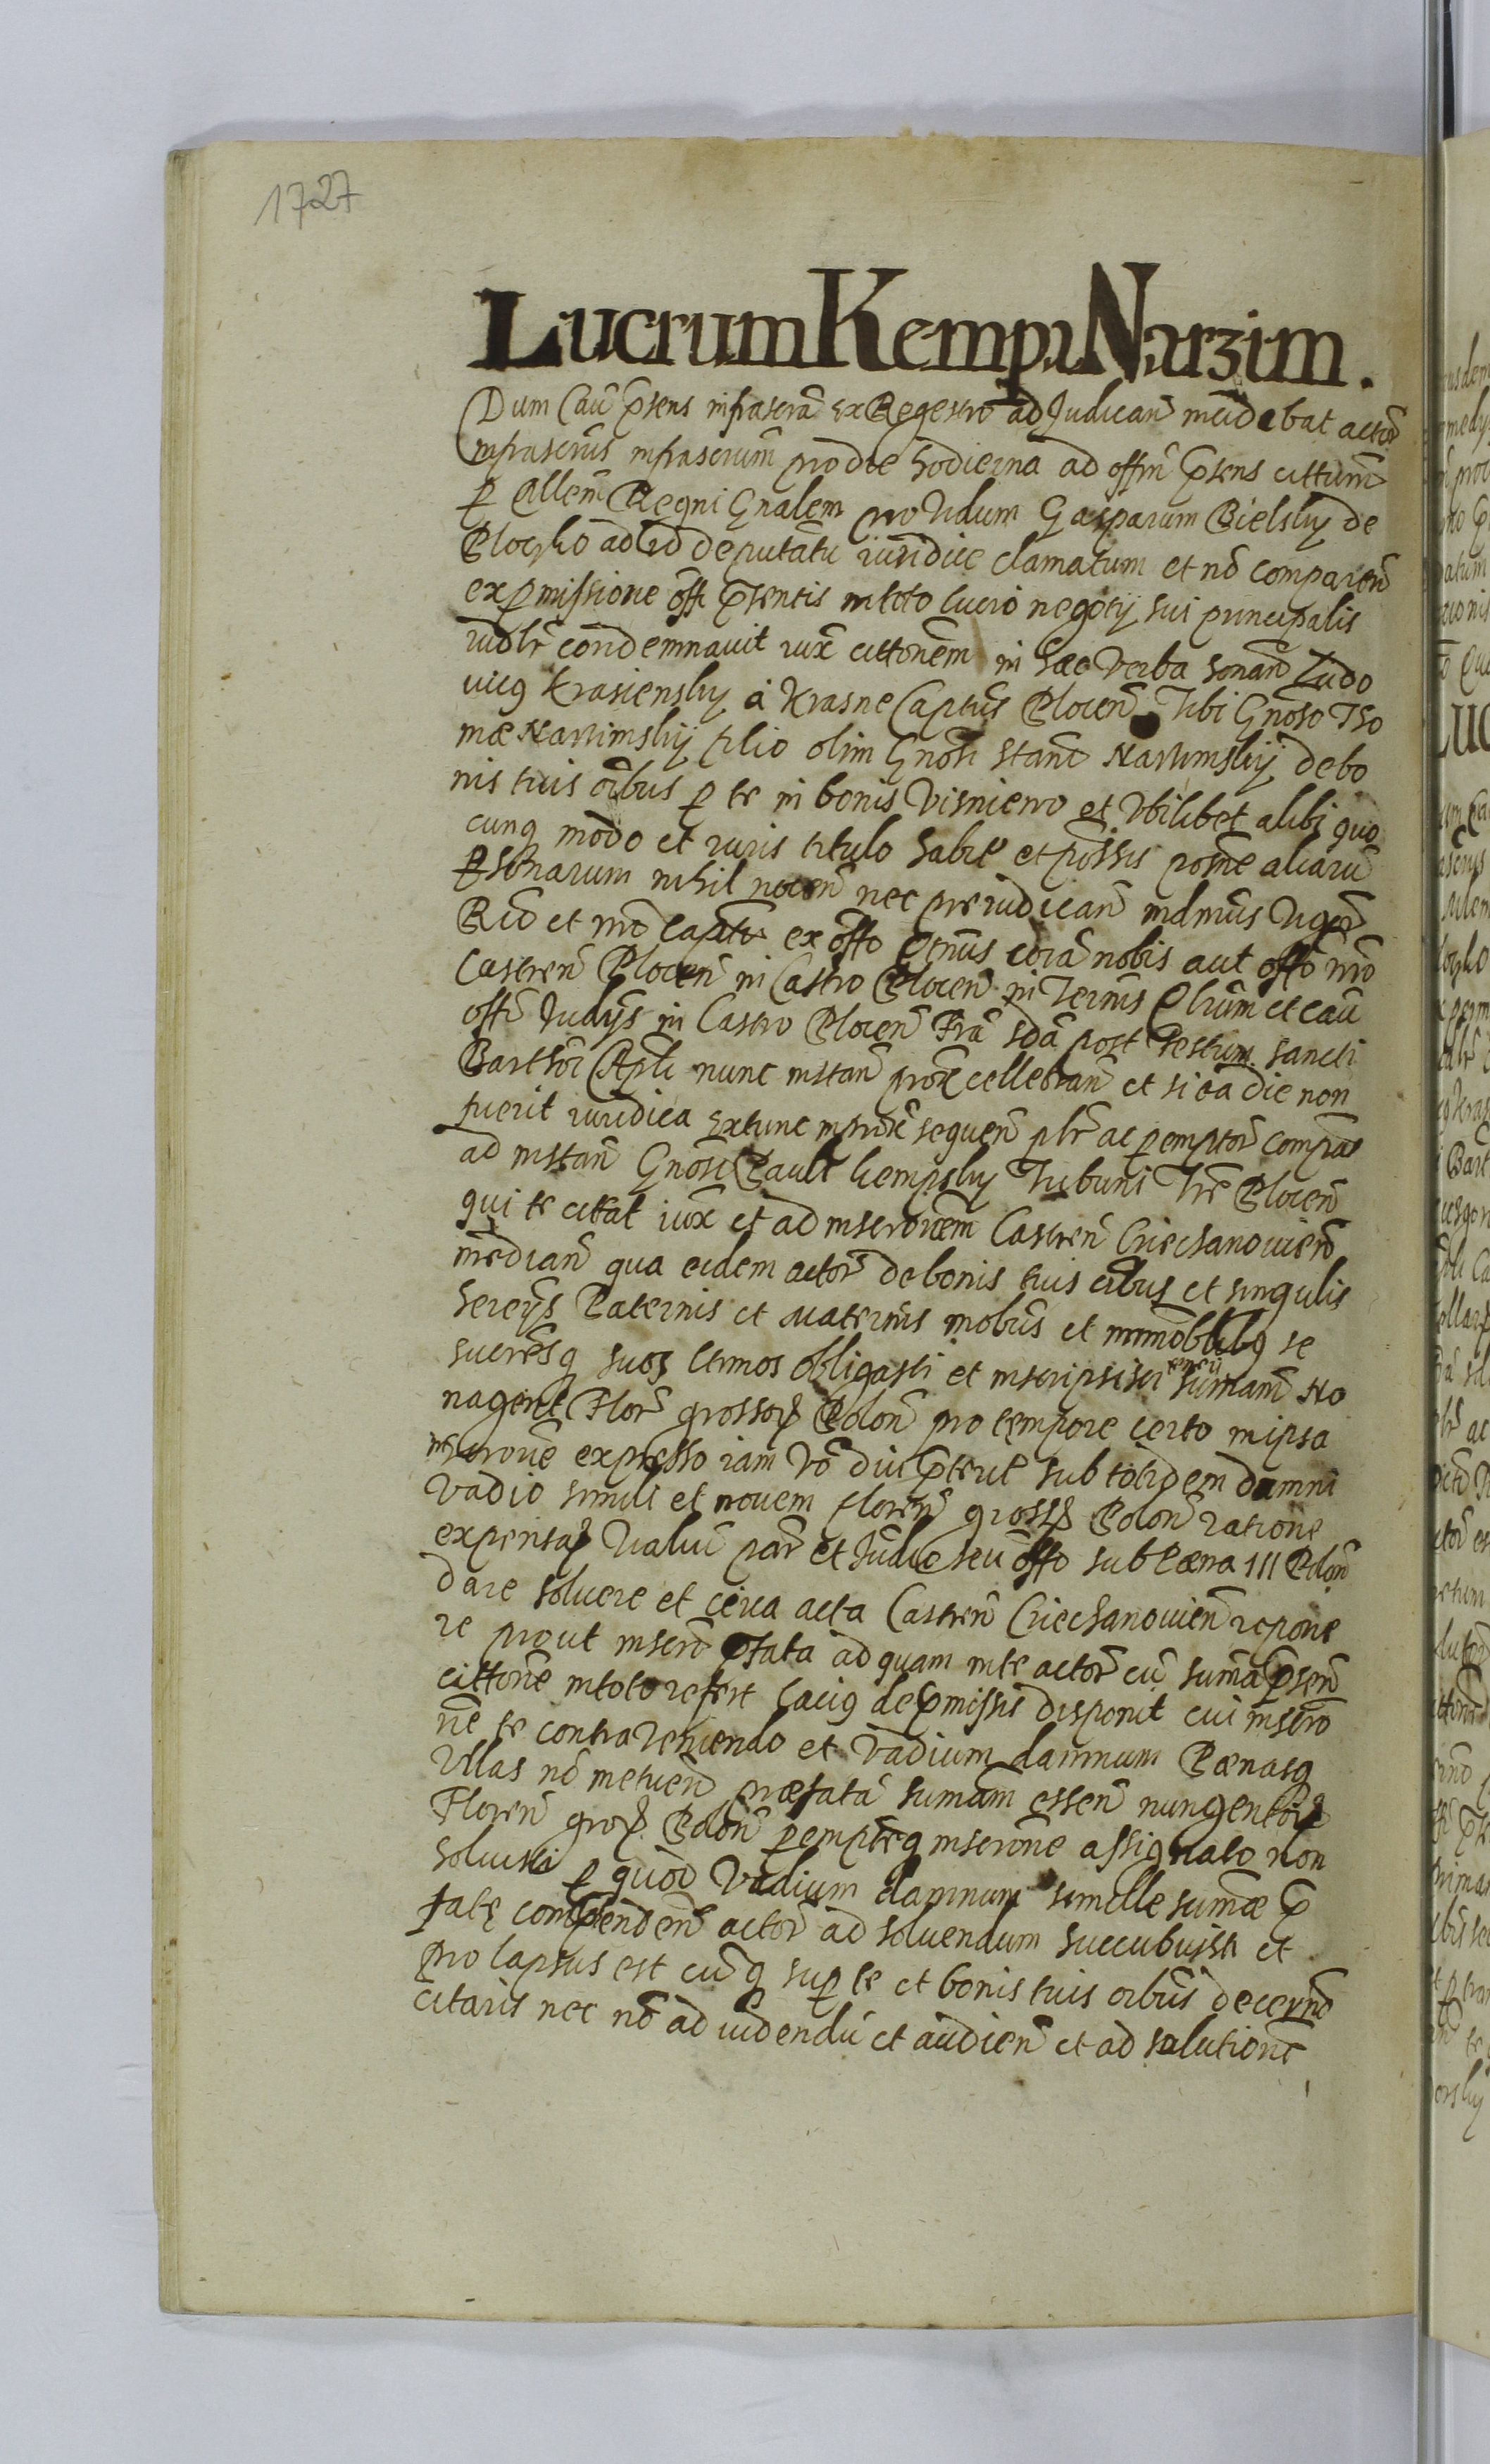 1727
Lucrum Kempa Narzim.
Dum Cau p̃sens infrascrã ex Regestro ad Judicañ incidebat actor
infrascrũs infrascrum̃ pro die hodierna ad offm̃ p̃sens cittum̃
p allem̃ Regni Gnalem providum Gasparum Bielsky de
Plocsko ad id deputatũ iuridice clamatum et nõ compareñ
ex pmissione offi p̃sentis in toto lucro negotij sui principalis
iudlr̃ condemnavit iux̃ cittonem̃ in hæc verba sonañ Ludo
vicq Krasiensky á Krasne Captus̃ Ploceñ Tibi Gnoso Tho
mæ Narzimsky filio olim Gnosi Stani Narzimskij de bo
nis tuis oĩbus p te in bonis Visniewo et Vbilibet alibi quo
cunq modo et iuris titulo habit et possis pome aliarũ
Psonarum nihil noceñ nec preiudicañ indmũs Vigore
Rio et mõ captũ ex offo p̃mus corã nobis aut offo nro
Castreñ Ploceñ in Castro Ploceñ in Termis Qlrum̃ et cau
offi Judijs in Castro Ploceñ Fra sdã post Festum Sancti
Barthoi Apli nunc instañ prox̃ cellebrañ et si ea die non
fuerit iuridica extunc in prox̃ sequeñ plr̃ ac pemptor̃ compar
ad instañ Gnosi Pauli kempsky Tribuni Tre Ploceñ
qui te citat iux̃ et ad inscronem̃ Castreñ Ciechanovieñ
mediañ qua eidem actor̃ de bonis tuis oĩbus et singulis
hereijs Paternis et Maternis mobũs et immobilibq se
sucresq suos ltimos obligasti et inscripsisti reneij sumam̃ No
nagent Flor̃ grossor Poloñ pro tempore certo in ipsa
inscrone expresso iam Vo diu p̃terit sub totidem damni
vadio simili et novem floreñ gross Poloñ ratione
expensar Valui par et Judic seu offo sub Pæna 111 Poloñ
dare solvere et circa acta Castreñ Ciechanovieñ repone
re prout inscro p̃fata ad quam inte actor̃ cũ suma p̃señ
cittone in toto refert lacius de p̃missis disponit cui inscro
nẽ te contraveniendo et Vadium damnum Pænasq
Vllas nõ metueñ præfatã sumam̃ esseñ nungentor
Floreñ gros Poloñ pempteq inscrone assignato non
solvisti p quod Vadium damnum simille sumæ p̃
fatę comp̃hendeñ actor̃ ad solvendum succubuisti et
pro lapsus est cumq sup te et bonis tuis oĩbus decerno
citaris nec nõ ad videndũ et audieñ et ad solutionẽ